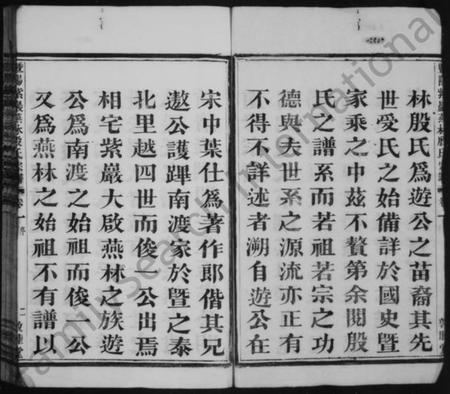 林殷氏爲遊公之苗裔其先
世受氏之始備詳於國史暨
家乘之中茲不贅第余閱殷
氏之譜系而若祖若宗之功
德與夫世系之源流亦正有
不得不詳述者溯自遊公在
宋中葉仕爲著作郎偕其兄
遨公護蹕南渡家於暨之泰
北里越四世而俊一公出焉
相宅紫巖大啟燕林之族遊
公爲南渡之始祖而俊一公
又爲燕林之始祖不有譜以
Family Search International